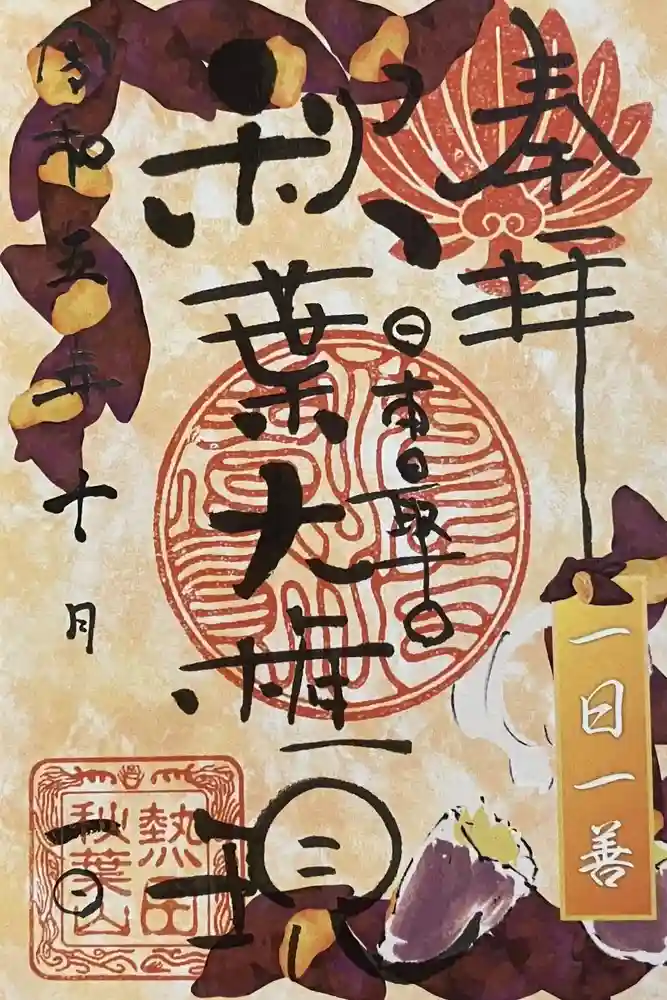 奉拝
日本最早〇
秋葉大権現
令和五年十月
一日
一日一善
熱田
秋葉山